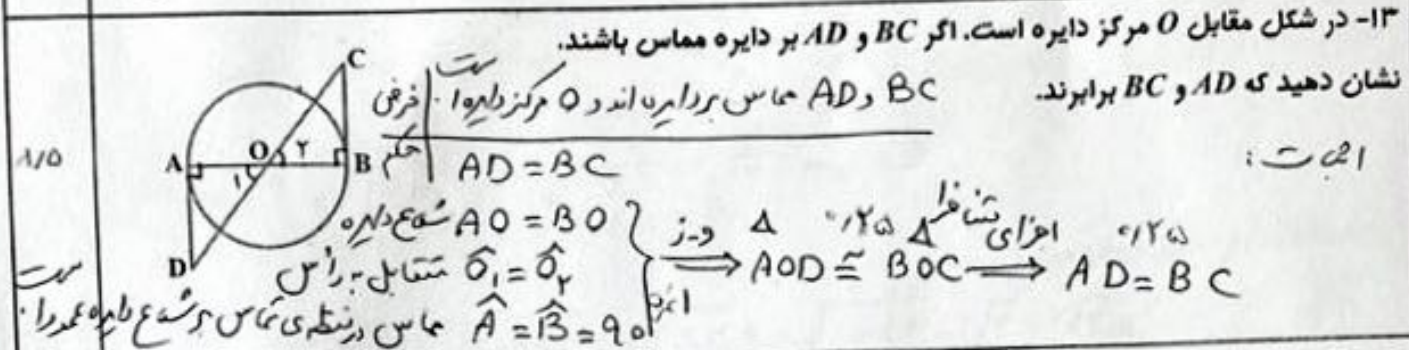 ۱۳- در شکل مقابل O مرکز دایره است. اگر BC و AD بر دایره مماس باشند.
نشان دهید که AD و BC برابرند.
فرض | BC و AD مماس بر دایره اند و O مرکز دایره است
حکم | AD = BC
اثبات :
۱/۵
C
A O ۱ ۲ B
D
AO = BO شعاع دایره
Ô۱ = Ô۲ متقابل به رأس
Â = B̂ = 90 مماس در نقطه‌ی تماس بر شعاع دایره عمود است
⟹ و-ز AOD ≅ BOC ۰/۲۵ ⟹ اجزای متناظر AD = BC ۰/۲۵